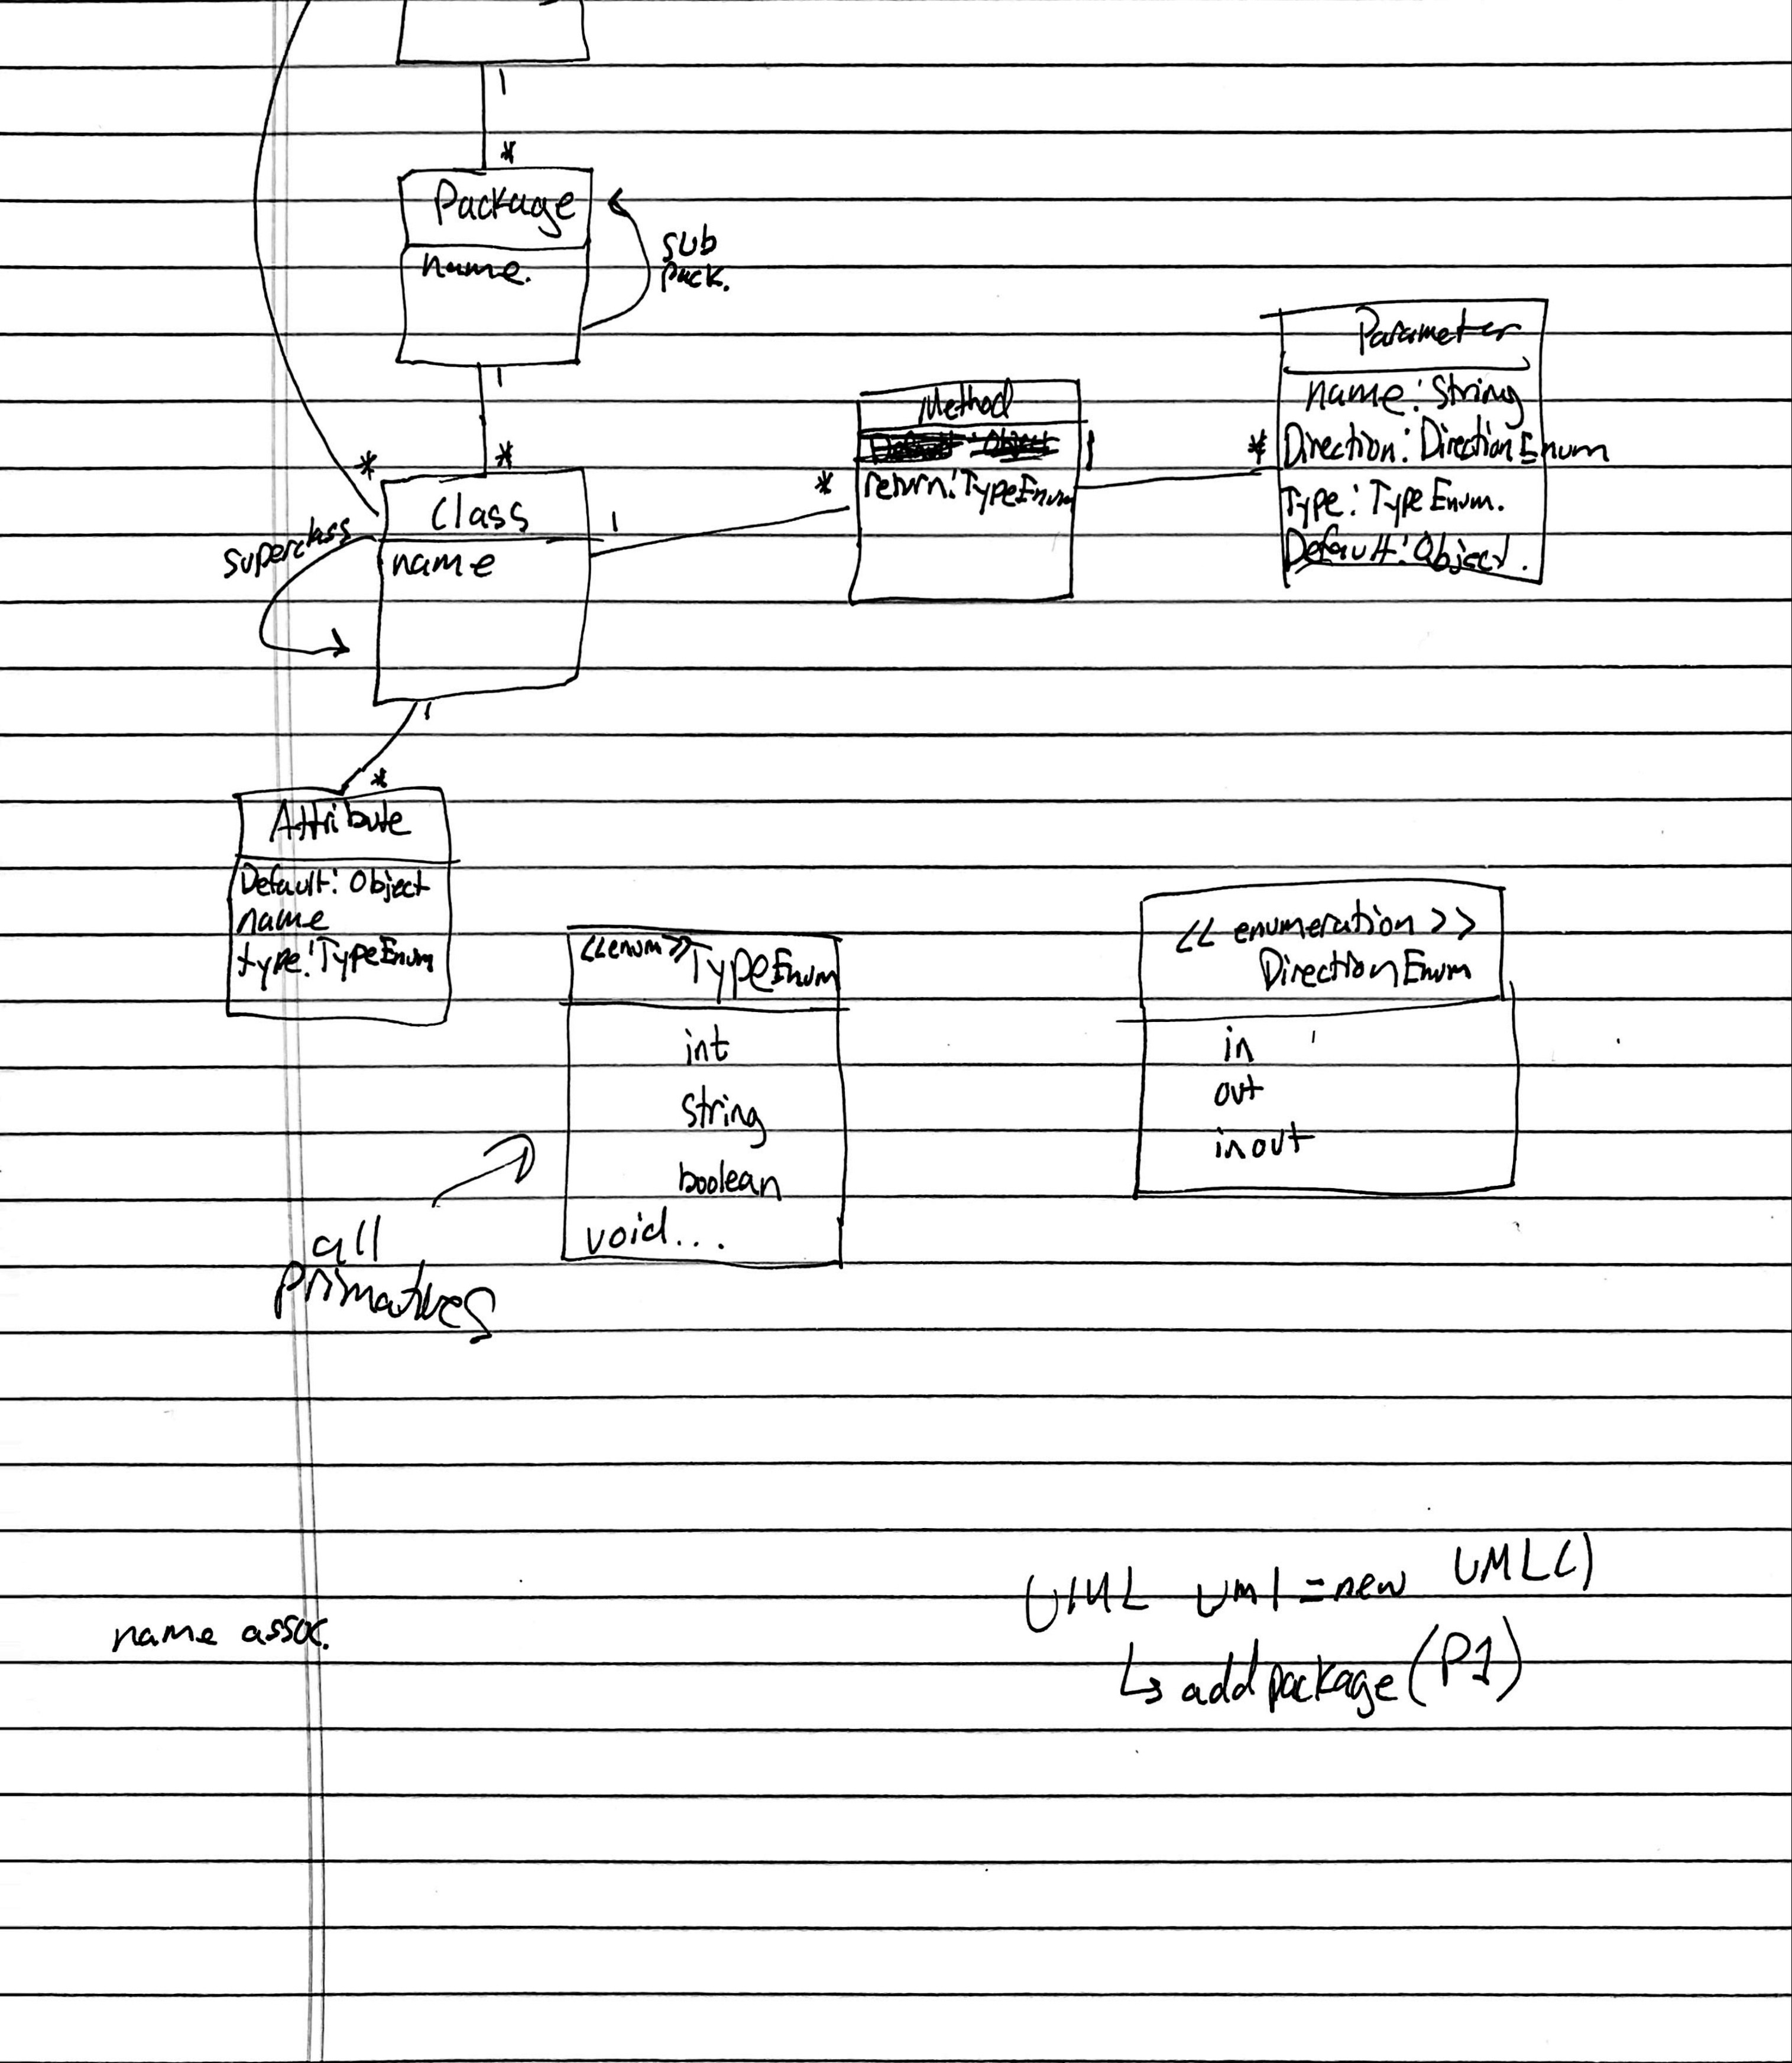 1
*
Package
name.
sub
pack.
1
*
*
Class
name
superclass
1
*
Method
return:TypeEnum
1
*
Parameter
name:String
Direction:DirectionEnum
Type:TypeEnum.
Default:Object.
1
*
Attribute
Default:Object
name
type:TypeEnum
<<enum>>TypeEnum
int
string
boolean
void...
all
primatives
<< enumeration >>
DirectionEnum
in
out
inout
name assoc.
UML uml = new UML()
↳ addpackage(P1)